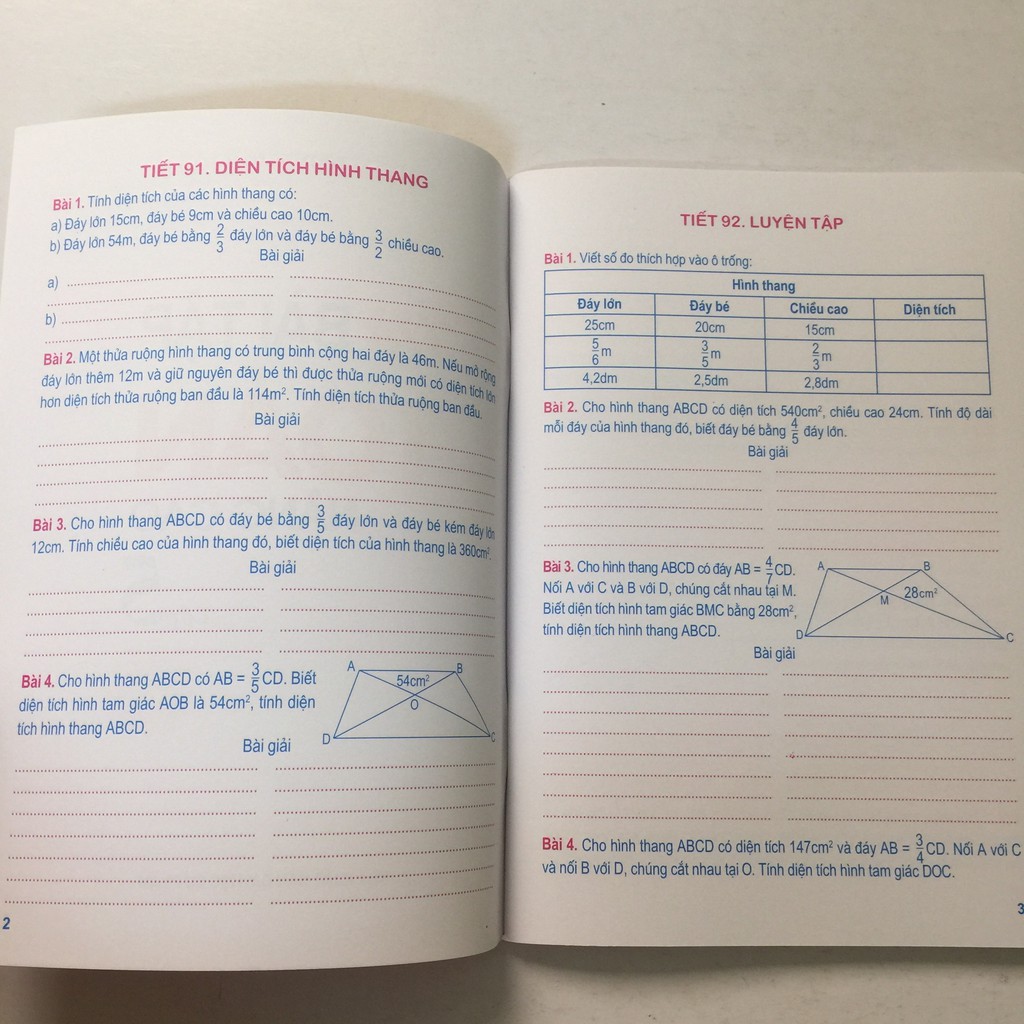 TIẾT 91. DIỆN TÍCH HÌNH THANG
Bài 1. Tính diện tích của các hình thang có:
a) Đáy lớn 15cm, đáy bé 9cm và chiều cao 10cm.
b) Đáy lớn 54m, đáy bé bằng 2/3 đáy lớn và đáy bé bằng 3/2 chiều cao.
Bài giải
a)
b)
Bài 2. Một thửa ruộng hình thang có trung bình cộng hai đáy là 46m. Nếu mở rộng
đáy lớn thêm 12m và giữ nguyên đáy bé thì được thửa ruộng mới có diện tích lớn
hơn diện tích thửa ruộng ban đầu là 114m². Tính diện tích thửa ruộng ban đầu.
Bài giải
Bài 3. Cho hình thang ABCD có đáy bé bằng 3/5 đáy lớn và đáy bé kém đáy lớn
12cm. Tính chiều cao của hình thang đó, biết diện tích của hình thang là 360cm².
Bài giải
Bài 4. Cho hình thang ABCD có AB = 3/5 CD. Biết
diện tích hình tam giác AOB là 54cm², tính diện
tích hình thang ABCD.
A B
54cm²
O
D C
Bài giải
2
TIẾT 92. LUYỆN TẬP
Bài 1. Viết số đo thích hợp vào ô trống:
Hình thang
Đáy lớn Đáy bé Chiều cao Diện tích
25cm 20cm 15cm
5/6 m 3/5 m 2/3 m
4,2dm 2,5dm 2,8dm
Bài 2. Cho hình thang ABCD có diện tích 540cm², chiều cao 24cm. Tính độ dài
mỗi đáy của hình thang đó, biết đáy bé bằng 4/5 đáy lớn.
Bài giải
Bài 3. Cho hình thang ABCD có đáy AB = 4/7 CD.
Nối A với C và B với D, chúng cắt nhau tại M.
Biết diện tích hình tam giác BMC bằng 28cm²,
tính diện tích hình thang ABCD.
A B
M 28cm²
D C
Bài giải
Bài 4. Cho hình thang ABCD có diện tích 147cm² và đáy AB = 3/4 CD. Nối A với C
và nối B với D, chúng cắt nhau tại O. Tính diện tích hình tam giác DOC.
3